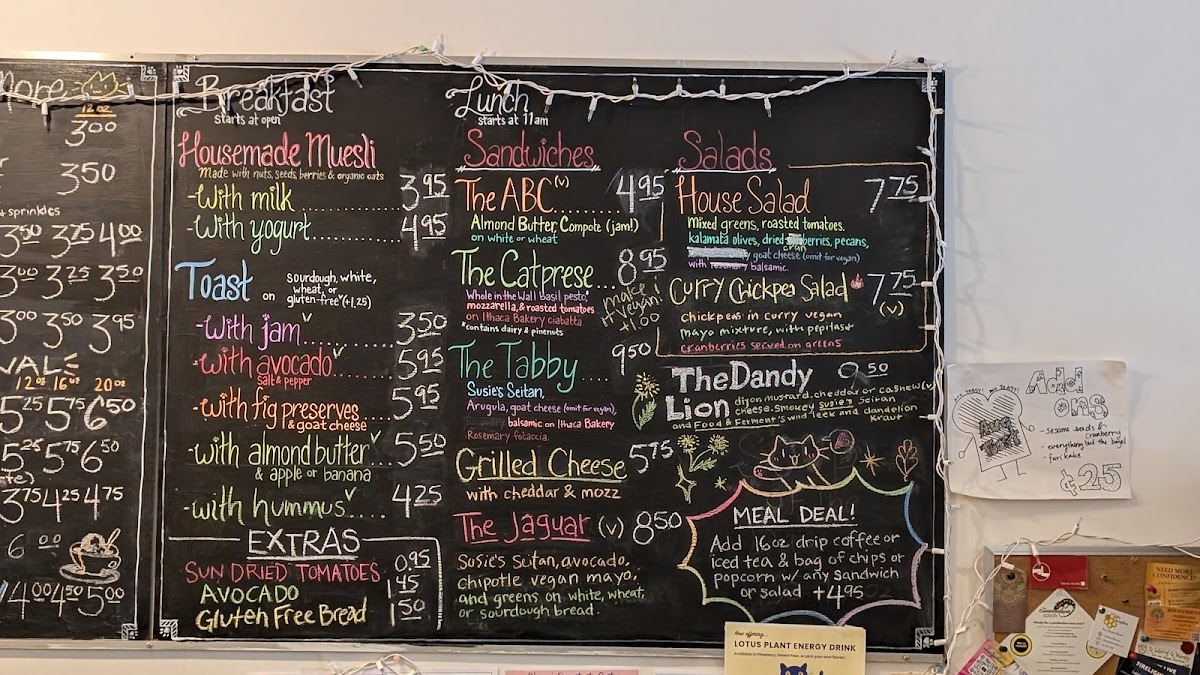 more
12 oz
3 00
3 50
+ sprinkles
3 50 3 75 4 00
3 00 3 25 3 50
3 00 3 50 3 95
VALS
12 oz 16 oz 20 oz
5 25 5 75 6 50
5 25 5 75 6 50
3 75 4 25 4 75
6 00
4 00 4 50 5 00
Breakfast
starts at open
Housemade Muesli
Made with nuts, seeds, berries & organic oats
-With milk 3 95
-With yogurt 4 95
Toast on sourdough, white,
wheat, or
gluten-free (+1.25)
-With jam v 3 50
-with avocado v 5 95
salt & pepper
-with fig preserves 5 95
& goat cheese
-with almond butter v 5 50
& apple or banana
-with hummus v 4 25
EXTRAS
SUN DRIED TOMATOES 0.95
AVOCADO 1 45
Gluten Free Bread 1 50
Lunch
starts at 11am
Sandwiches
The ABC (v) 4 95
Almond Butter, Compote (jam!)
on white or wheat
The Catprese 8 95
Whole in the Wall basil pesto,
mozzarella, & roasted tomatoes
on Ithaca Bakery ciabatta
*contains dairy & pinenuts
make it vegan! +1.00
The Tabby 9 50
Susie's Seitan,
Arugula, goat cheese (omit for vegan),
balsamic on Ithaca Bakery
Rosemary focaccia.
Grilled Cheese 5 75
with cheddar & mozz
The Jaguar (v) 8 50
Susie's Seitan, avocado,
chipotle vegan mayo,
and greens on white, wheat,
or sourdough bread.
Salads
House Salad 7 75
Mixed greens, roasted tomatoes,
kalamata olives, dried cranberries, pecans,
goat cheese (omit for vegan)
with balsamic.
Curry Chickpea Salad 7 75
(v)
chickpeas in curry vegan
mayo mixture, with pepitas +
cranberries served on greens
The Dandy 9.50
Lion
dijon mustard, cheddar or cashew (v)
cheese, smokey Susie's Seitan
and Food & Ferment's wild leek and dandelion
kraut
MEAL DEAL!
Add 16oz drip coffee or
iced tea & bag of chips or
popcorn w/ any sandwich
or salad +4.95
Add
ons
- Sesame seeds &
cranberry
- everything but the bagel
- furikake
¢25
Now offering...
LOTUS PLANT ENERGY DRINK
NEED MORE
CONFIDENCE?